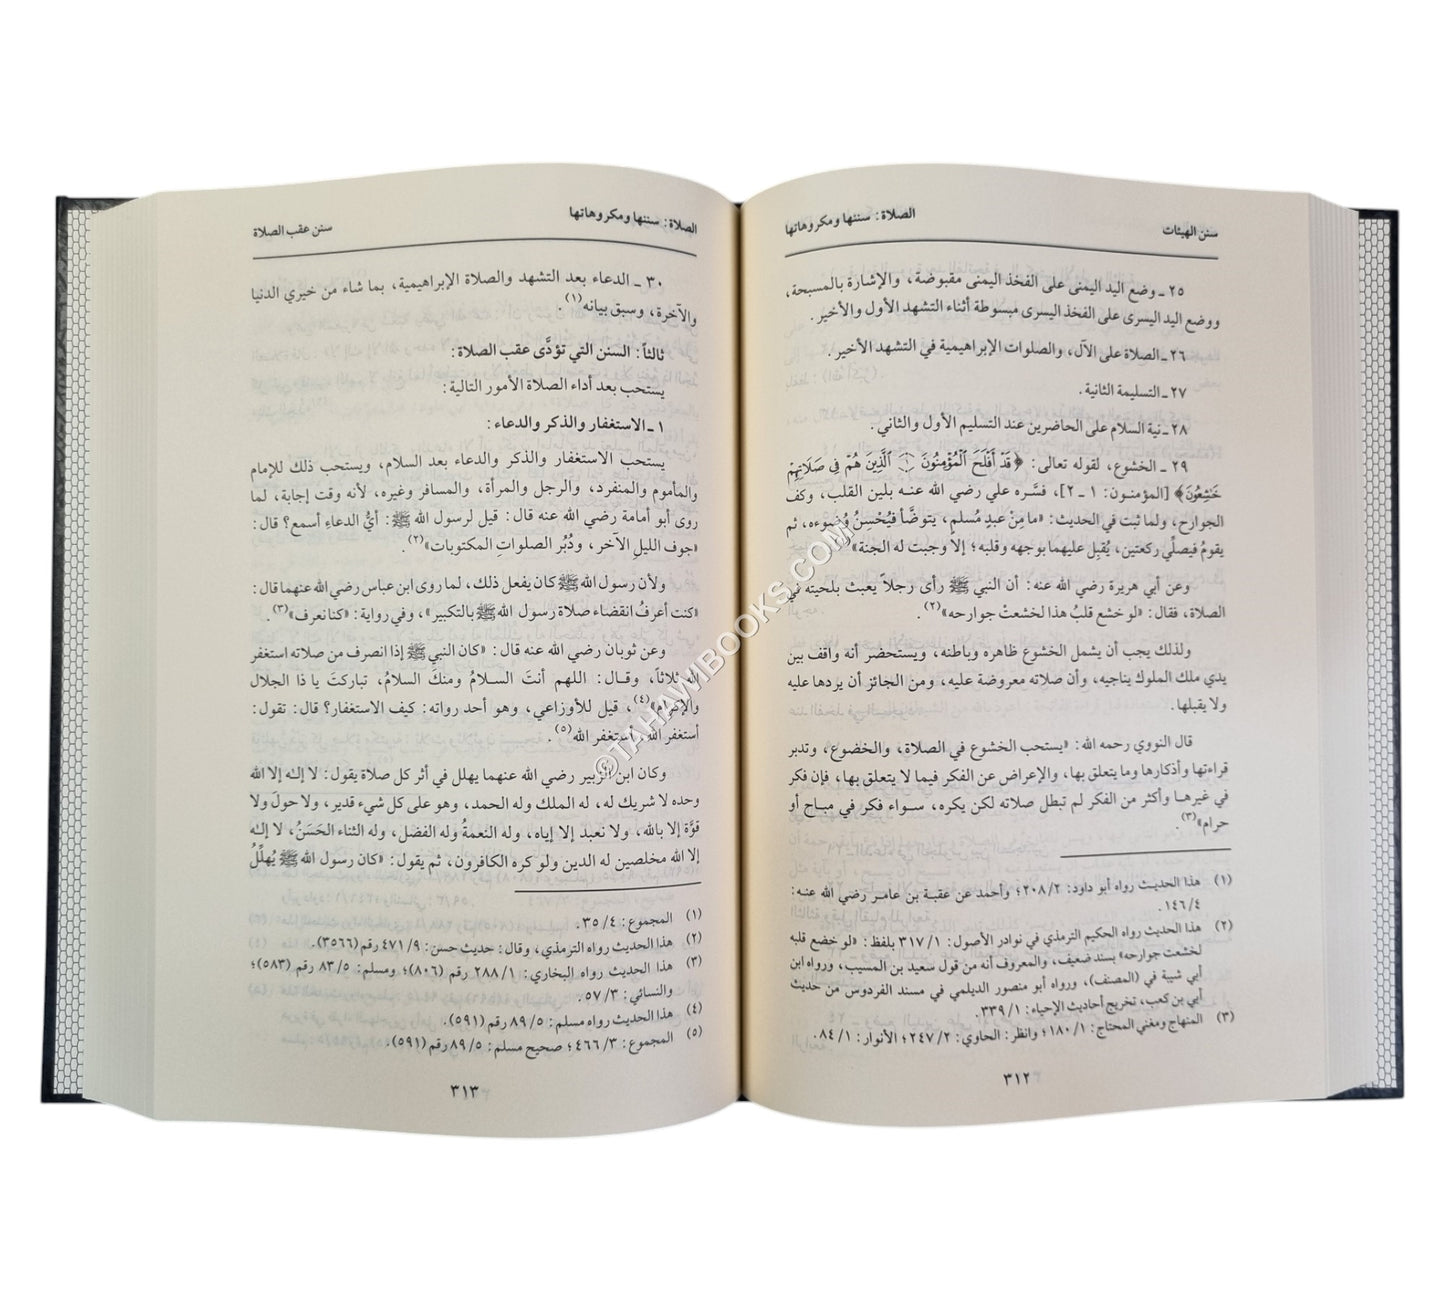 سنن الهيئات
الصلاة: سننها ومكروهاتها
٢٥ ـ وضع اليد اليمنى على الفخذ اليمنى مقبوضة، والإشارة بالمسبحة،
ووضع اليد اليسرى على الفخذ اليسرى مبسوطة أثناء التشهد الأول والأخير.
٢٦ ـ الصلاة على الآل، والصلوات الإبراهيمية في التشهد الأخير.
٢٧ ـ التسليمة الثانية.
٢٨ ـ نية السلام على الحاضرين عند التسليم الأول والثاني.
٢٩ ـ الخشوع، لقوله تعالى: ﴿قَدْ أَفْلَحَ ٱلْمُؤْمِنُونَ ١ ٱلَّذِينَ هُمْ فِي صَلَاتِهِمْ
خَٰشِعُونَ﴾ [المؤمنون: ١ ـ ٢]، فسَّره علي رضي الله عنه بلين القلب، وكف
الجوارح، ولما ثبت في الحديث: «ما مِنْ عبدٍ مُسلم، يتوضَّأ فيُحْسِنُ وُضوءه، ثم
يقومُ فيصلِّي ركعتين، يُقبِل عليهما بوجهه وقلبه؛ إلا وجبت له الجنة»
وعن أبي هريرة رضي الله عنه: أن النبي ﷺ رأى رجلاً يعبث بلحيته في
الصلاة، فقال: «لو خشع قلبُ هذا لخشعتْ جوارحه»(٢).
ولذلك يجب أن يشمل الخشوع ظاهره وباطنه، ويستحضر أنه واقف بين
يدي ملك الملوك يناجيه، وأن صلاته معروضة عليه، ومن الجائز أن يردها عليه
ولا يقبلها.
قال النووي رحمه الله: «يستحب الخشوع في الصلاة، والخضوع، وتدبر
قراءتها وأذكارها وما يتعلق بها، والإعراض عن الفكر فيما لا يتعلق بها، فإن فكر
في غيرها وأكثر من الفكر لم تبطل صلاته لكن يكره، سواء فكر في مباح أو
حرام»(٣).
(١) هذا الحديث رواه أبو داود: ٢/ ٢٠٨؛ وأحمد عن عقبة بن عامر رضي الله عنه:
٤/ ١٤٦.
(٢) هذا الحديث رواه الحكيم الترمذي في نوادر الأصول: ١/ ٣١٧ بلفظ: «لو خضع قلبه
لخشعت جوارحه» بسند ضعيف، والمعروف أنه من قول سعيد بن المسيب، ورواه ابن
أبي شيبة في (المصنف)، ورواه أبو منصور الديلمي في مسند الفردوس من حديث
أبي بن كعب، تخريج أحاديث الإحياء: ١/ ٣٣٩.
(٣) المنهاج ومغني المحتاج: ١/ ١٨٠؛ وانظر: الحاوي: ٢/ ٢٤٧؛ الأنوار: ١/ ٨٤.
٣١٢
الصلاة: سننها ومكروهاتها
سنن عقب الصلاة
٣٠ ـ الدعاء بعد التشهد والصلاة الإبراهيمية، بما شاء من خيري الدنيا
والآخرة، وسبق بيانه(١).
ثالثاً: السنن التي تؤدَّى عقب الصلاة:
يستحب بعد أداء الصلاة الأمور التالية:
١ ـ الاستغفار والذكر والدعاء:
يستحب الاستغفار والذكر والدعاء بعد السلام، ويستحب ذلك للإمام
والمأموم والمنفرد، والرجل والمرأة، والمسافر وغيره، لأنه وقت إجابة، لما
روى أبو أمامة رضي الله عنه قال: قيل لرسول الله ﷺ: أيُّ الدعاءِ أسمع؟ قال:
«جوف الليلِ الآخر، ودُبُر الصلواتِ المكتوبات»(٢).
ولأن رسول الله ﷺ كان يفعل ذلك، لما روى ابن عباس رضي الله عنهما قال:
«كنت أعرفُ انقضاء صلاة رسول الله ﷺ بالتكبير»، وفي رواية: «كنا نعرف»(٣).
وعن ثوبان رضي الله عنه قال: «كان النبي ﷺ إذا انصرف من صلاته استغفر
الله ثلاثاً، وقال: اللهم أنتَ السلامُ ومنكَ السلامُ، تباركتَ يا ذا الجلال
والإكرام»(٤)، قيل للأوزاعي، وهو أحد رواته: كيف الاستغفار؟ قال: تقول:
أستغفر الله، أستغفر الله(٥).
وكان ابن الزبير رضي الله عنهما يهلل في أثر كل صلاة يقول: لا إلٰه إلا الله
وحده لا شريك له، له الملك وله الحمد، وهو على كل شيء قدير، ولا حولَ ولا
قوَّة إلا بالله، ولا نعبد إلا إياه، وله النعمةُ وله الفضل، وله الثناء الحَسَنُ، لا إلٰه
إلا الله مخلصين له الدين ولو كره الكافرون، ثم يقول: «كان رسول الله ﷺ يُهلِّلُ
(١) المجموع: ٤/ ٣٥.
(٢) هذا الحديث رواه الترمذي، وقال: حديث حسن: ٩/ ٤٧١ رقم (٣٥٦٦).
(٣) هذا الحديث رواه البخاري: ١/ ٢٨٨ رقم (٨٠٦)؛ ومسلم: ٥/ ٨٣ رقم (٥٨٣)؛
والنسائي: ٣/ ٥٧.
(٤) هذا الحديث رواه مسلم: ٥/ ٨٩ رقم (٥٩١).
(٥) المجموع: ٣/ ٤٦٦؛ صحيح مسلم: ٥/ ٨٩ رقم (٥٩١).
٣١٣
©TAHAWIBOOKS.COM